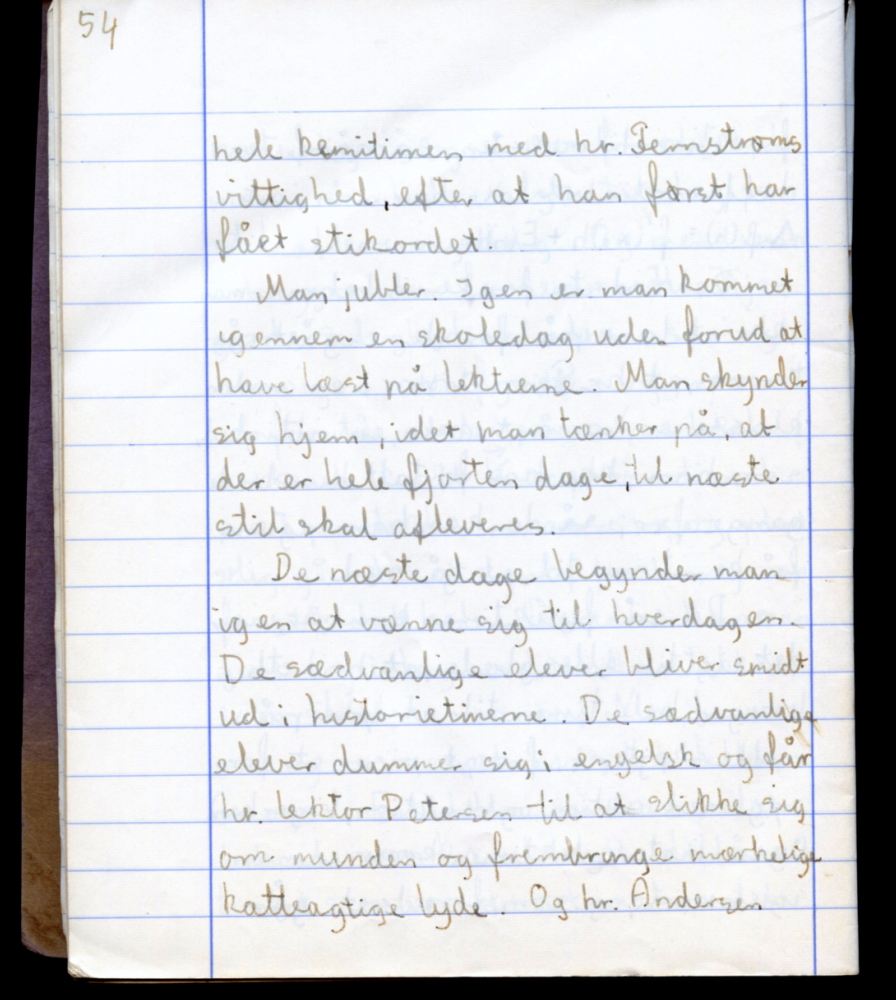 54
hele kemitimen med hr. Fernstrøms
vittighed, efter at han først har
fået stikordet.
Man jubler. Igen er man kommet
igennem en skoledag uden forud at
have læst på lektierne. Man skynder
sig hjem, idet man tænker på, at
der er hele fjorten dage, til næste
stil skal afleveres.
De næste dage begynder man
igen at vænne sig til hverdagen.
De sædvanlige elever bliver smidt
ud i historietimerne. De sædvanlige
elever dummer sig i engelsk og får
hr. lektor Petersen til at slikke sig
om munden og frembringe mærkelige
katteagtige lyde. Og hr. Andersen